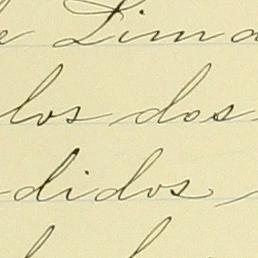 Lima
los dos
didos